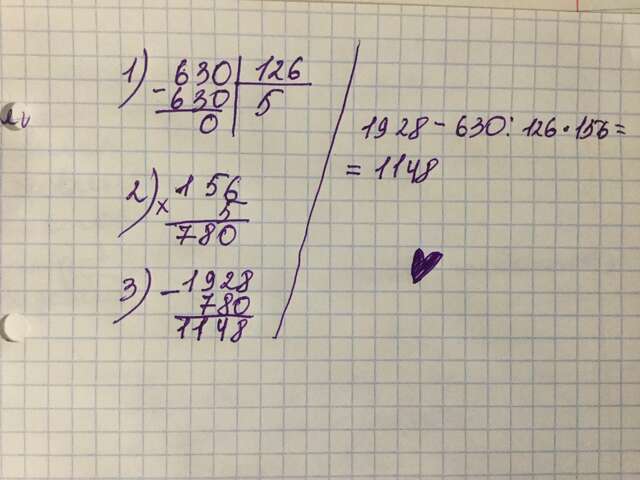 1) - 630 | 126
630 | 5
0
2) x 156
5
780
3) - 1928
780
1148
1928 - 630 : 126 · 156 =
= 1148